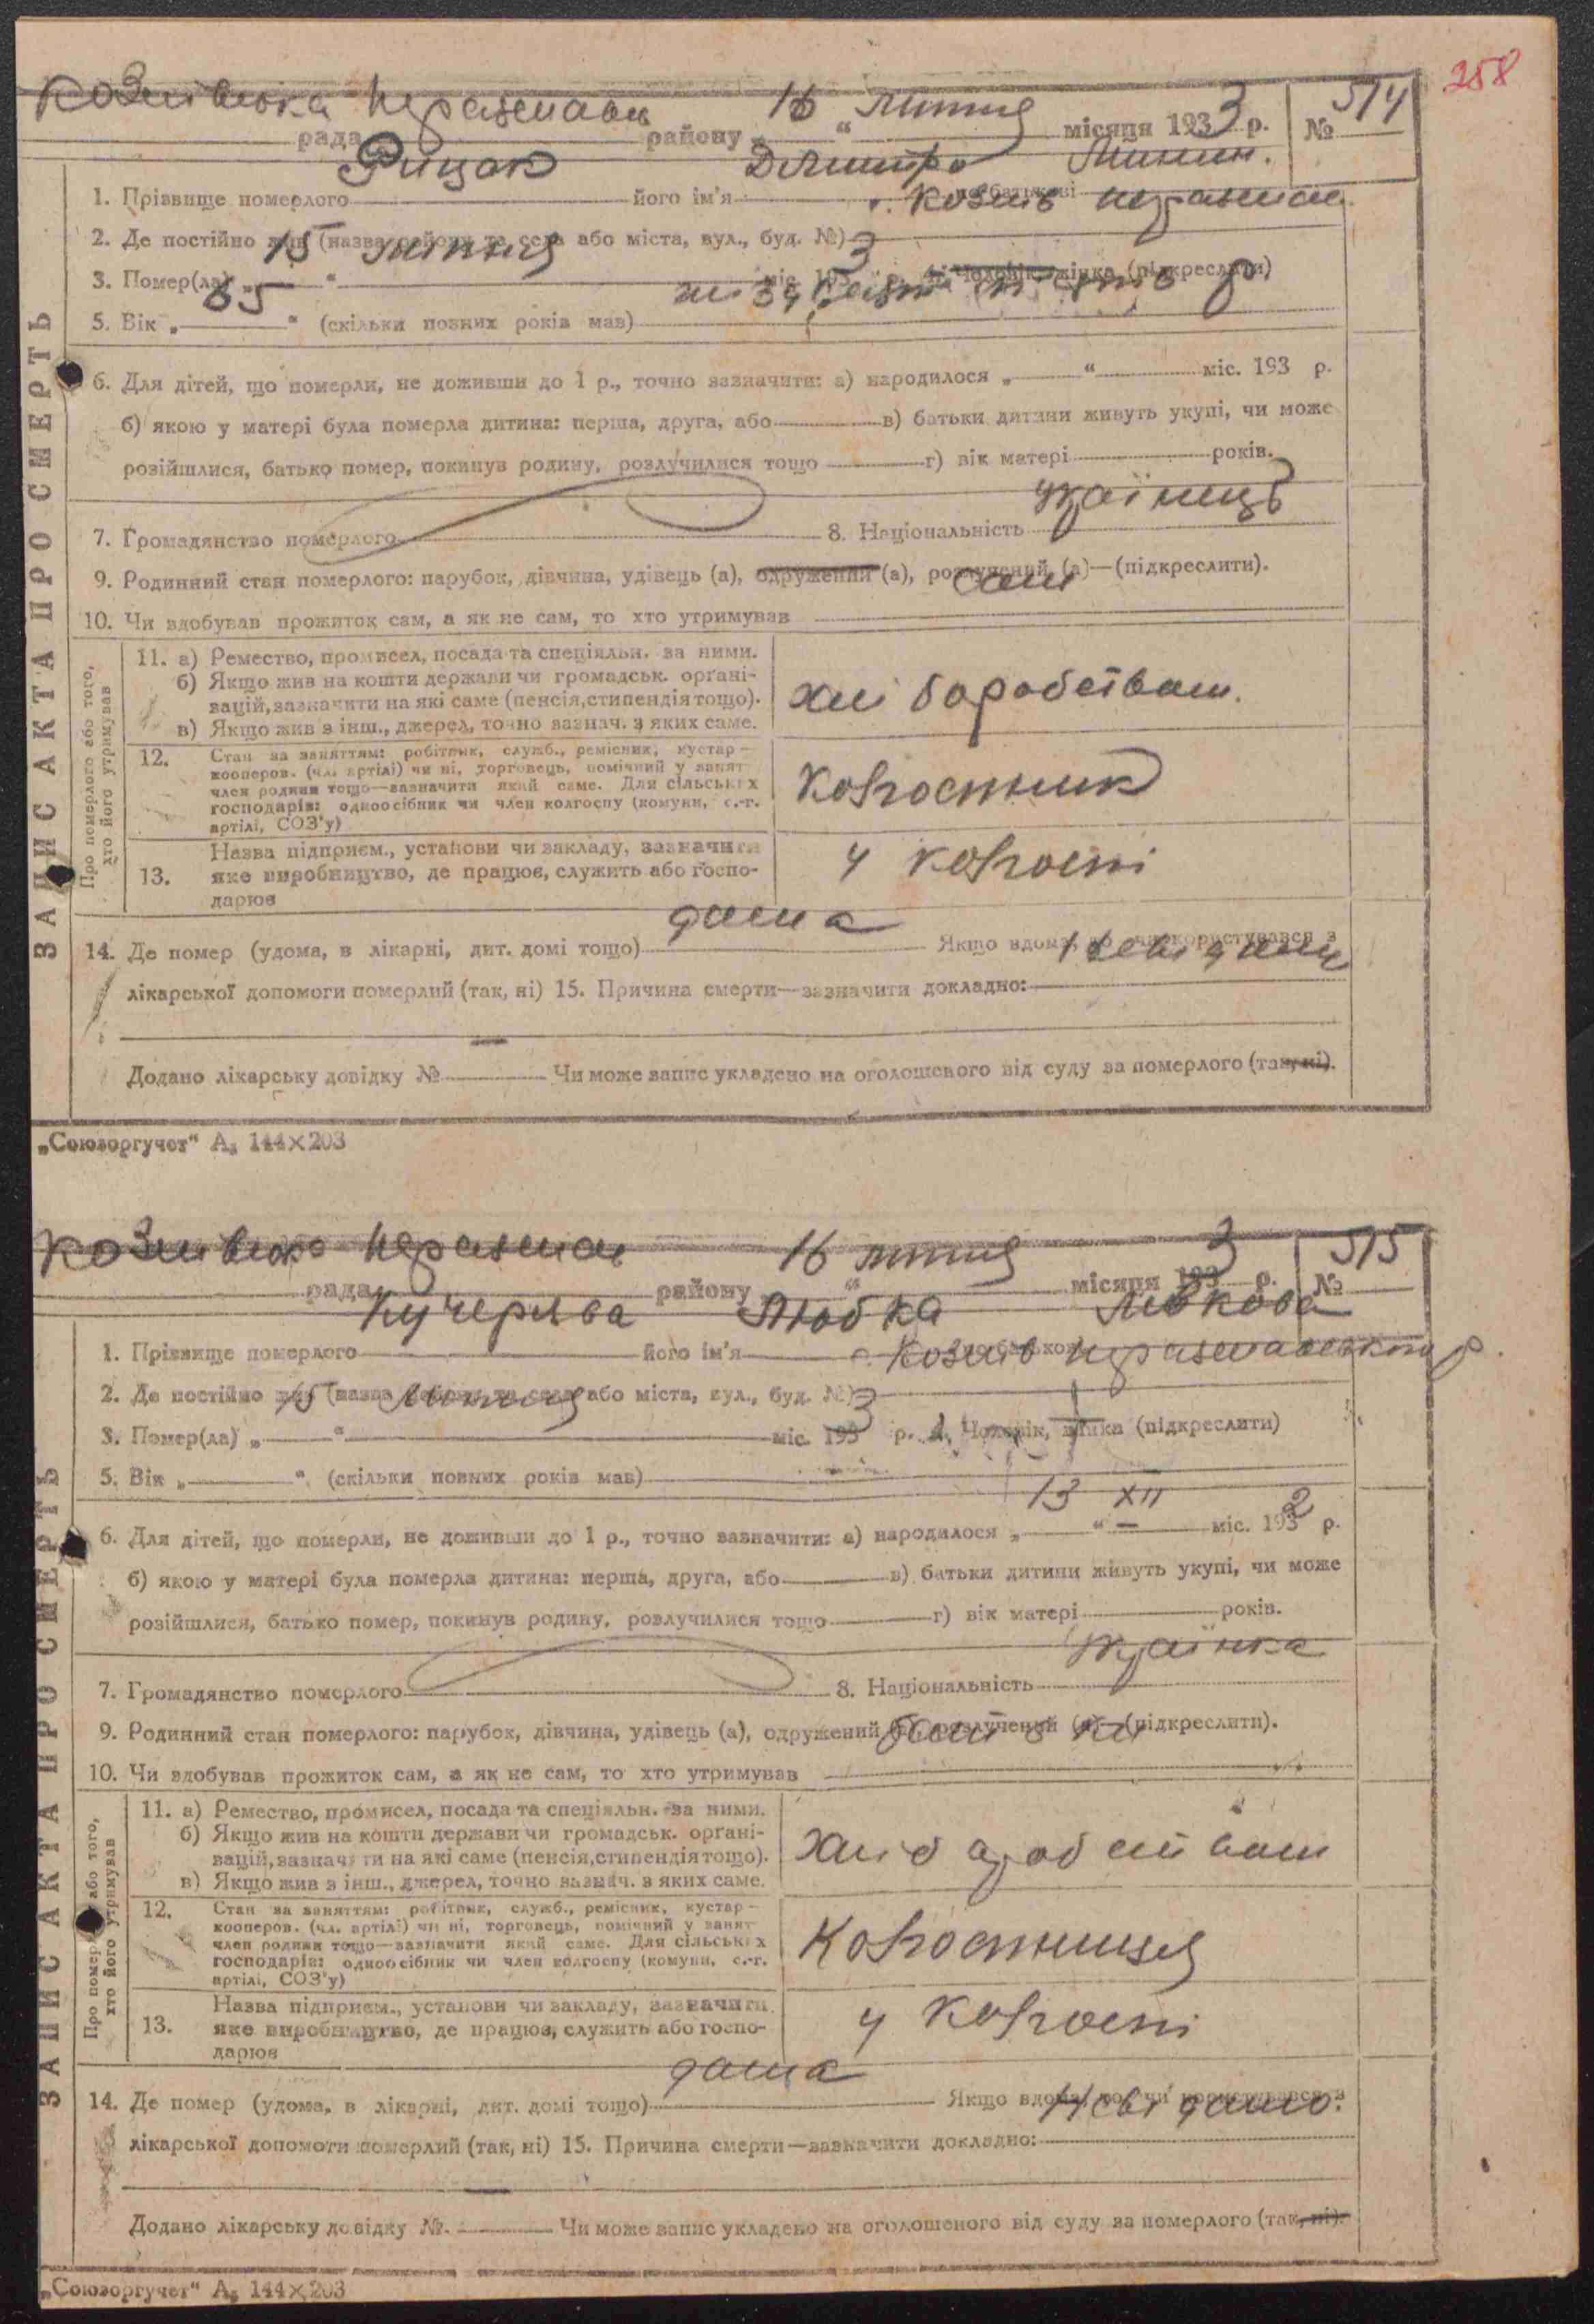 258
Козлівська Переяславс 16 липня 3 514
рада району „ “ місяця 193 р. №
Рицак Дмитро
1. Прізвище померлого його ім'я по батькові
с. Козлів Переяслав
2. Де постійно жив (назва району та села або міста, вул., буд. №)
15 липня 3
3. Помер(ла) „ “ міс. 193 р. 4. Чоловік, жінка (підкреслити)
65
5. Вік „ “ (скільки повних років мав)
6. Для дітей, що померли, не доживши до 1 р., точно зазначити: а) народилося „ “ міс. 193 р.
б) якою у матері була померла дитина: перша, друга, або в) батьки дитини живуть укупі, чи може
розійшлися, батько помер, покинув родину, розлучилися тощо г) вік матері років.
українець
7. Громадянство померлого 8. Національність
9. Родинний стан померлого: парубок, дівчина, удівець (а), одружений (а), розлучений (а)—(підкреслити).
сам
10. Чи здобував прожиток сам, а як не сам, то хто утримував
ЗАПИС АКТА ПРО СМЕРТЬ
Про померлого або того, хто його утримував
11. а) Ремество, промисел, посада та спеціяльн. за ними.
б) Якщо жив на кошти держави чи громадськ. орґані-
зацій, зазначити на які саме (пенсія, стипендія тощо).
в) Якщо жив з інш., джерел, точно зазнач. з яких саме.
хліборобством.
12. Стан за заняттям: робітник, служб., ремісник, кустар—
кооперов. (чл. артілі) чи ні, торговець, помічний у занят
член родини тощо—зазначити який саме. Для сільських
господарів: одноосібник чи член колгоспу (комуни, с.-г.
артілі, СОЗ'у)
Колгоспник
13. Назва підприєм., установи чи закладу, зазначити
яке виробництво, де працює, служить або госпо-
дарює
у колгоспі
дома
14. Де помер (удома, в лікарні, дит. домі тощо) Якщо вдома, то чи користувався з
лікарської допомоги померлий (так, ні) 15. Причина смерти—зазначити докладно:
Додано лікарську довідку № Чи може запис укладено на оголошеного від суду за померлого (так, ні).
„Союзоргучет“ А₅ 144×203
Козлівська Переяслав 16 липня 3 515
рада району „ “ місяця 193 р. №
Кучерява Любка Левкова
1. Прізвище померлого його ім'я по батькові
с. Козлів Переяславського р.
2. Де постійно жив (назва району та села або міста, вул., буд. №)
15 липня 3
3. Помер(ла) „ “ міс. 193 р. 4. Чоловік, жінка (підкреслити)
5. Вік „ “ (скільки повних років мав)
13 XII 2
6. Для дітей, що померли, не доживши до 1 р., точно зазначити: а) народилося „ “ міс. 193 р.
б) якою у матері була померла дитина: перша, друга, або в) батьки дитини живуть укупі, чи може
розійшлися, батько помер, покинув родину, розлучилися тощо г) вік матері років.
українка
7. Громадянство померлого 8. Національність
9. Родинний стан померлого: парубок, дівчина, удівець (а), одружений (а), розлучений (а)—(підкреслити).
10. Чи здобував прожиток сам, а як не сам, то хто утримував
ЗАПИС АКТА ПРО СМЕРТЬ
Про померлого або того, хто його утримував
11. а) Ремество, промисел, посада та спеціяльн. за ними.
б) Якщо жив на кошти держави чи громадськ. орґані-
зацій, зазначити на які саме (пенсія, стипендія тощо).
в) Якщо жив з інш., джерел, точно зазнач. з яких саме.
12. Стан за заняттям: робітник, служб., ремісник, кустар—
кооперов. (чл. артілі) чи ні, торговець, помічний у занят
член родини тощо—зазначити який саме. Для сільських
господарів: одноосібник чи член колгоспу (комуни, с.-г.
артілі, СОЗ'у)
Колгоспниця
13. Назва підприєм., установи чи закладу, зазначити
яке виробництво, де працює, служить або госпо-
дарює
у колгоспі
дома
14. Де помер (удома, в лікарні, дит. домі тощо) Якщо вдома, то чи користувався з
Невідомо.
лікарської допомоги померлий (так, ні) 15. Причина смерти—зазначити докладно:
Додано лікарську довідку №. Чи може запис укладено на оголошеного від суду за померлого (так, ні).
„Союзоргучет“ А₅ 144×203